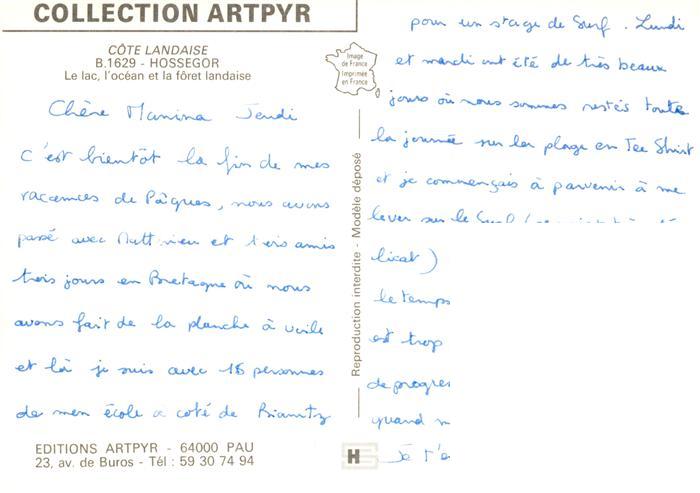 COLLECTION ARTPYR
CÔTE LANDAISE
B.1629 - HOSSEGOR
Le lac, l'océan et la fôret landaise
Image
de France
Imprimée
en France
Chère Manina Jeudi
c'est bientôt la fin de mes
vacances de Pâques, nous avons
passé avec Matthieu et trois amis
trois jours en Bretagne où nous
avons fait de la planche à voile
et là je suis avec 18 personnes
de mon école a coté de Biarritz
EDITIONS ARTPYR - 64000 PAU
23, av. de Buros - Tél : 59 30 74 94
Reproduction interdite - Modèle déposé
pour un stage de Surf. Lundi
et mardi ont été de très beaux
jours où nous sommes restés toute
la journée sur la plage en Tee Shirt
et je commençais à parvenir à me
lever sur le Surf
licat)
le temps
est trop
de progres
quand
Je t'e